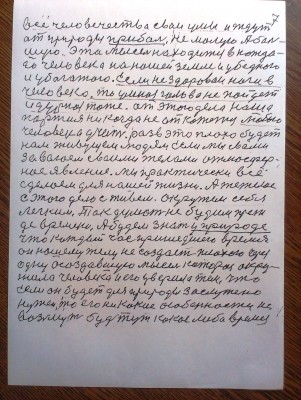 7
всё человечества свои умы и ждут
от природы прибал, не малую, а боль
шую. Эта мысль находится в каждо
го человека на нашей земле и у бедного
и у богатого. Если не здоровая нога в
человека, то умной голова не пойдёт
и дурной тоже. от этого дела наша
партия никогда не от кого
человека учит, раз это плохо будет
нам живущем людям если мы сами
завалом своими телами атмосфер-
ное явление. мы практически всё
сделаем для нашей жизни. А тяжелое
с этого дело оставим. окружим себя
легким, так думать не будим преж
де времени, А будем знать природе
что каждый час пришедшего время
он нашему телу не создаёт плохого
одну создавшую мысль которая окру-
жила человека его уверила тем, что
если он будет для природы заслужено
нужен, то его никакие особенности не
возьмут будут какое либо время